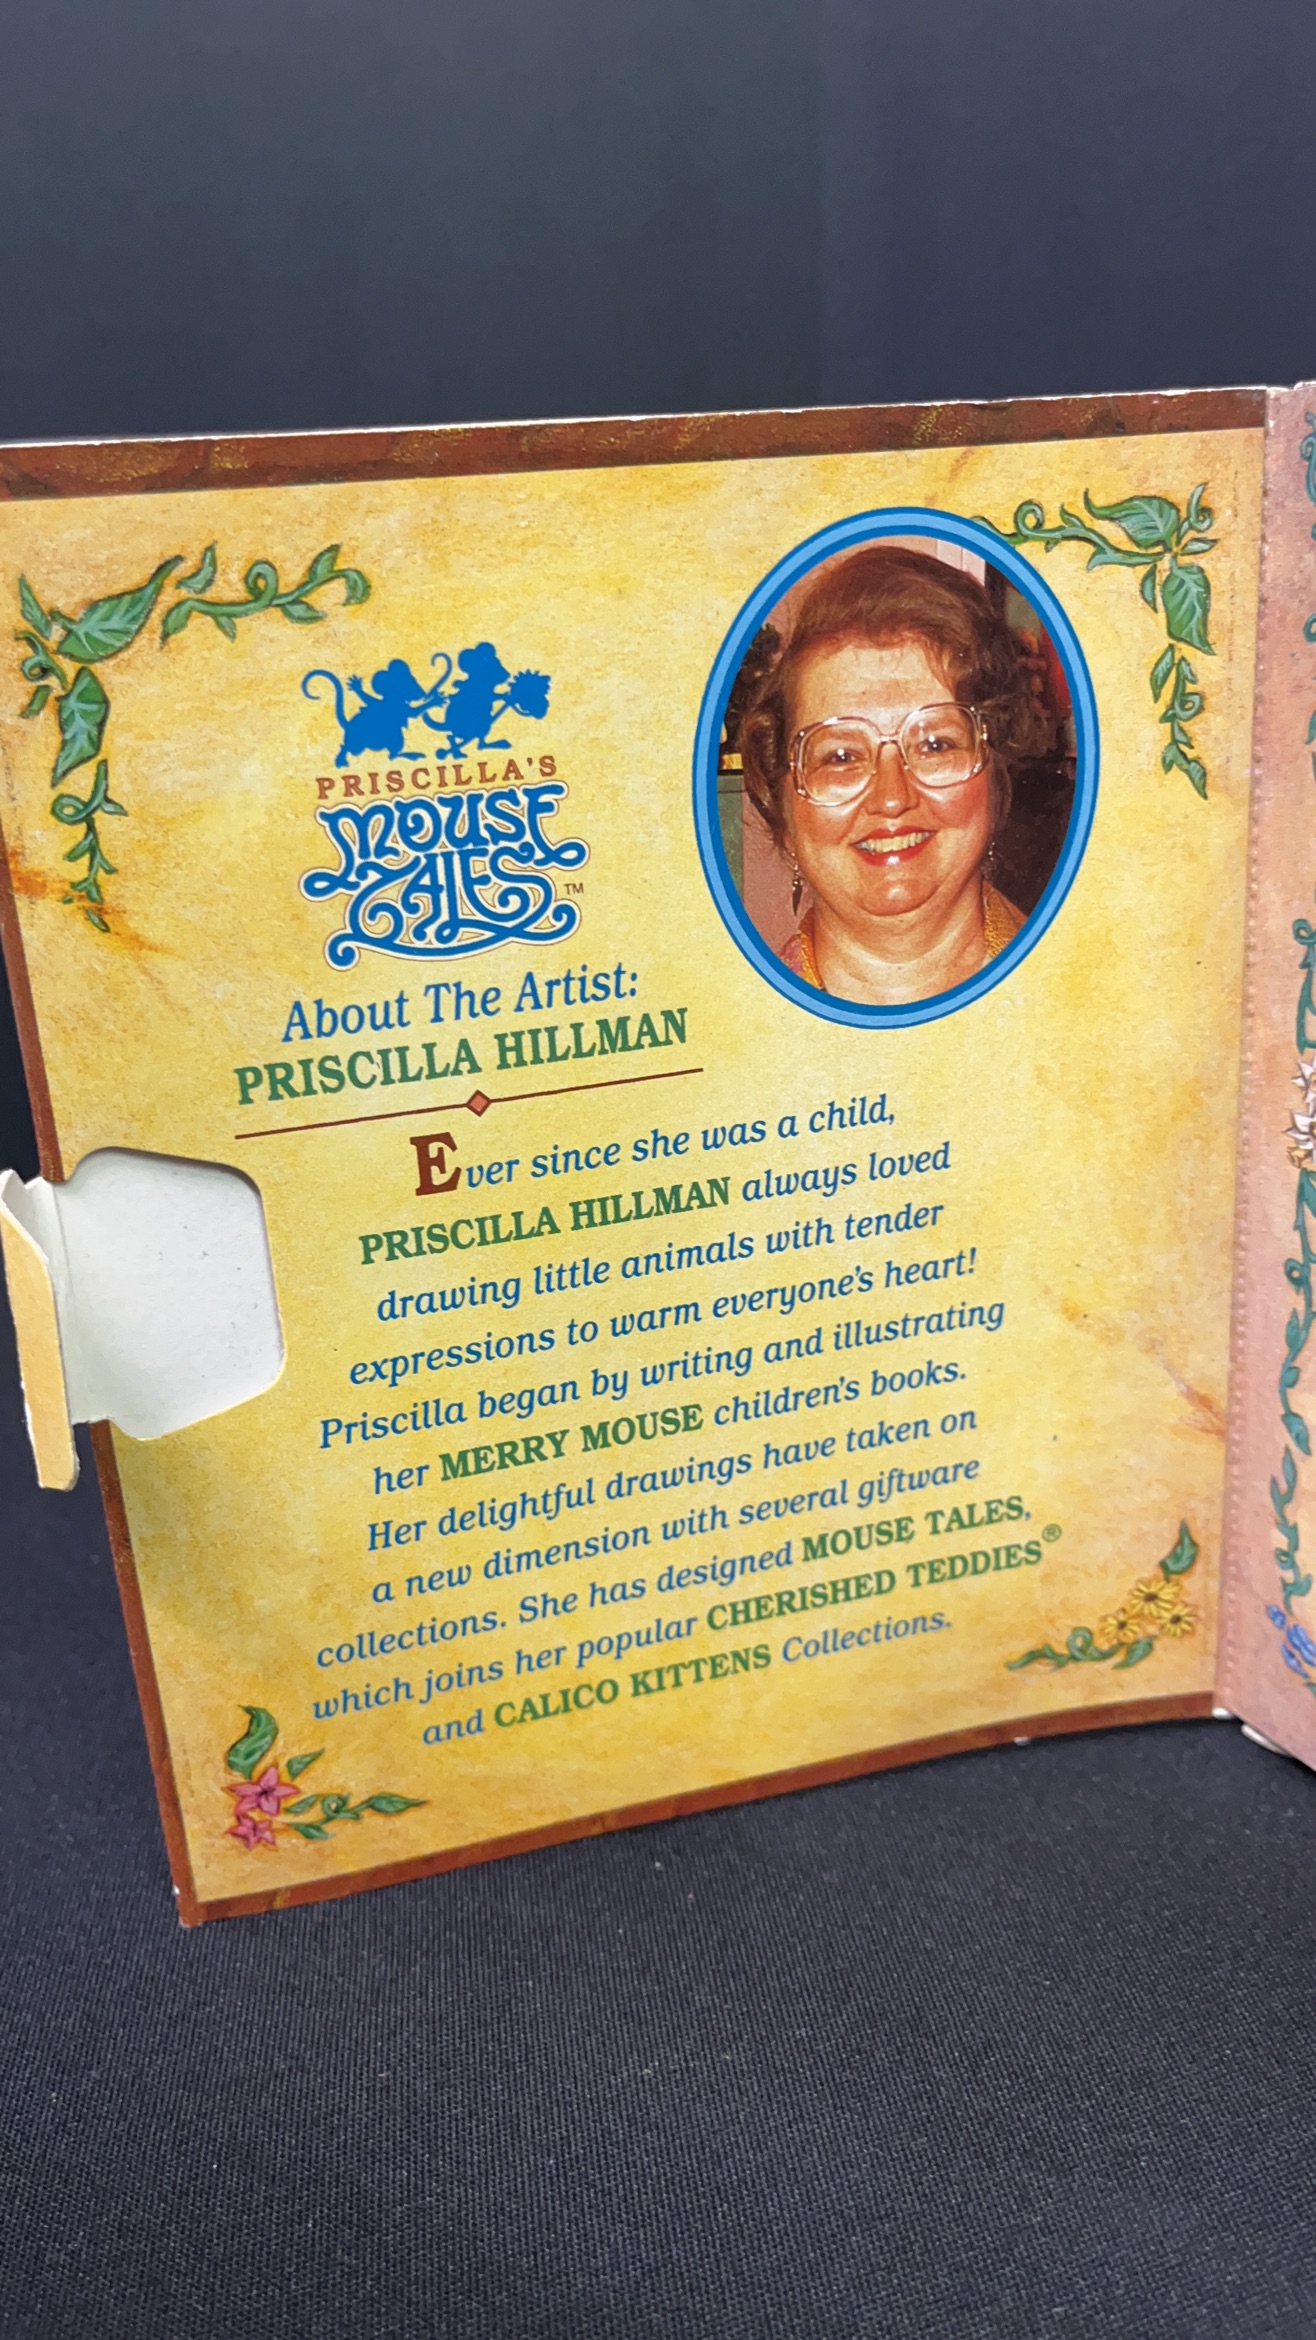 PRISCILLA'S
MOUSE
TALES™
About The Artist:
PRISCILLA HILLMAN
Ever since she was a child,
PRISCILLA HILLMAN always loved
drawing little animals with tender
expressions to warm everyone's heart!
Priscilla began by writing and illustrating
her MERRY MOUSE children's books.
Her delightful drawings have taken on
a new dimension with several giftware
collections. She has designed MOUSE TALES,
which joins her popular CHERISHED TEDDIES®
and CALICO KITTENS Collections.